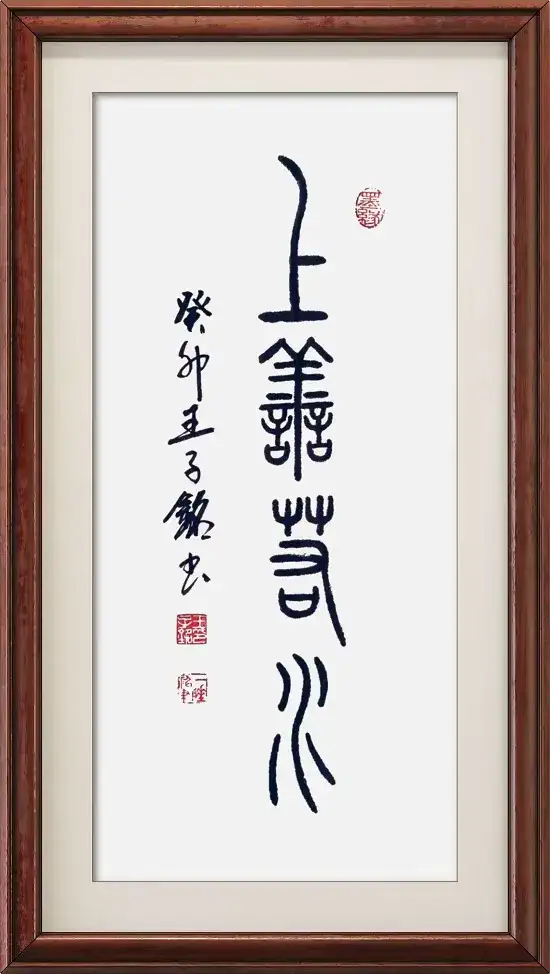 上善若水
癸卯王子銘书